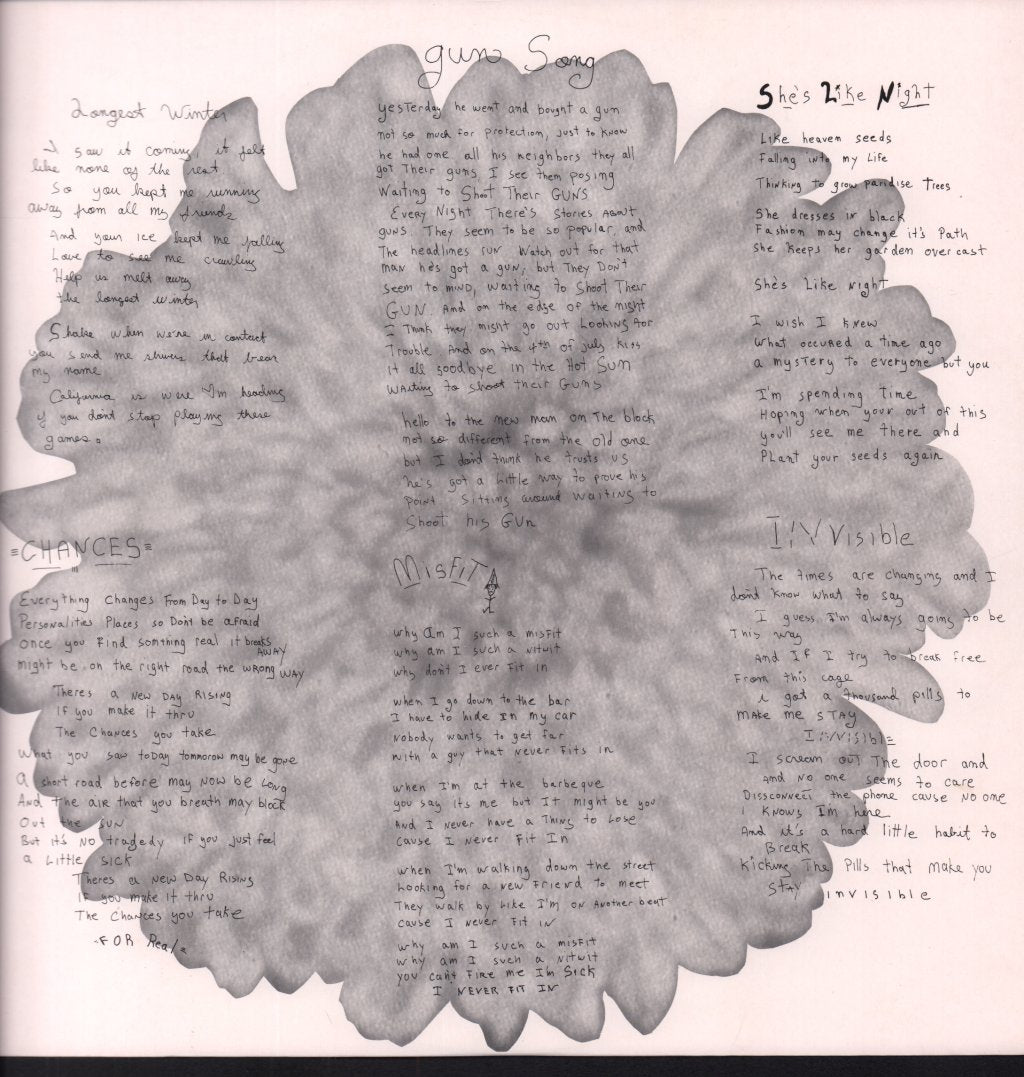 Longest Winter
I saw it coming, it felt
like none of the rest
So you kept me running
away from all my friends
And your ice kept me falling
Love to see me crawling
Help us melt away
the longest winter
Shake when we're in contact
you send me shivers that bear
my name
California is were I'm heading
if you dont stop playing these
games.
≡CHANCES≡
Everything Changes From Day to Day
Personalities Places so Dont be afraid
once you find somthing real it breaks
AWAY
might be on the right road the wrong way
Theres a New Day Rising
If you make it thru
The Chances you take
What you saw today tomorrow may be gone
a short road before may now be long
And the air that you breath may block
Out the sun
But its no tragedy if you just feel
a little sick
Theres a New Day Rising
if you make it thru
The Chances you take
-FOR Real-
gun Song
yesterday he went and bought a gun
not so much for protection, just to know
he had one. all his neighbors they all
got Their guns, I see them posing
Waiting to Shoot Their GUNS
Every Night There's stories About
guns. They seem to be so popular, and
The headlines run Watch out for that
man he's got a gun, but They Don't
seem to mind, waiting to Shoot Their
GUN. And on the edge of the night
I Think they might go out Looking for
Trouble And on the 4th of july kiss
it all goodbye in the Hot Sun
waiting to shoot their Guns
hello to the new man on The block
not so different from the old one
but I dont think he trusts us
he's got a little way to prove his
point sitting around waiting to
Shoot his Gun
MisFiT
why Am I such a misfit
why am I such a nitwit
why don't I ever Fit in
when I go down to the bar
I have to hide In my car
Nobody wants to get far
with a guy that Never Fits in
when I'm at the barbeque
you say its me but It might be you
And I never have a Thing to Lose
Cause I Never Fit In
when I'm walking down the street
Looking for a new Friend to meet
They walk by Like I'm on Another beat
cause I Never Fit in
why am I such a misfit
why am I such a nitwit
you cant Fire me Im Sick
I NEVER FIT IN
She's Like Night
Like heaven seeds
Falling into my Life
Thinking to grow paridise Trees
She dresses in black
Fashion may change it's Path
She keeps her garden overcast
She's Like Night
I wish I knew
What occured a time ago
a mystery to everyone but you
I'm spending Time
Hoping when your out of this
you'll see me there and
Plant your seeds again
INVisible
The times are changing and I
dont know what to say
I guess I'm always going to be
This way
And If I try to break free
From this cage
i got a thousand pills to
make me STAY
INVISIBLE
I scream out The door and
And no one seems to care
Dissconnect the phone cause no one
Knows Im here
And it's a hard little habit to
Break
Kicking The Pills that make you
STAY invisible